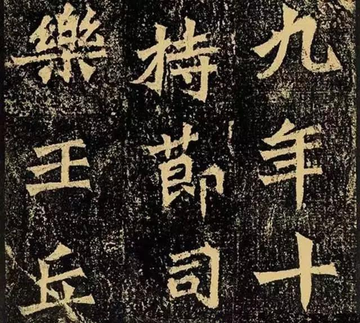 九年十
持節司
樂王丘